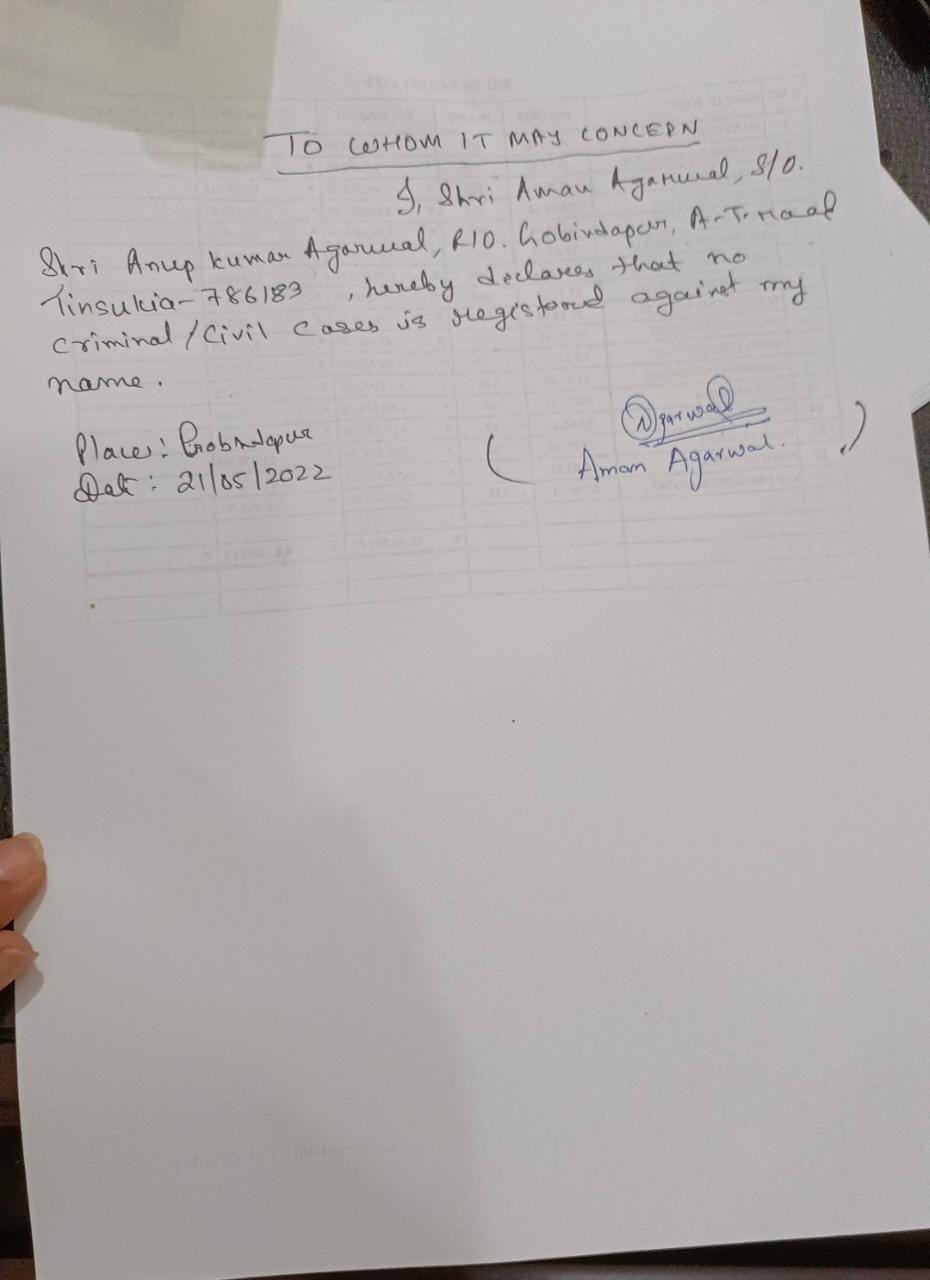 TO WHOM IT MAY CONCERN
I, Shri Aman Agarwal, S/O.
Shri Anup kumar Agarwal, R/O. Gobindapur, A.T. Road
Tinsukia-786183, hereby declares that no
criminal/Civil Cases is registered against my
name.
Agarwal
Place: Gobindapur ( Aman Agarwal. )
Date: 21/05/2022